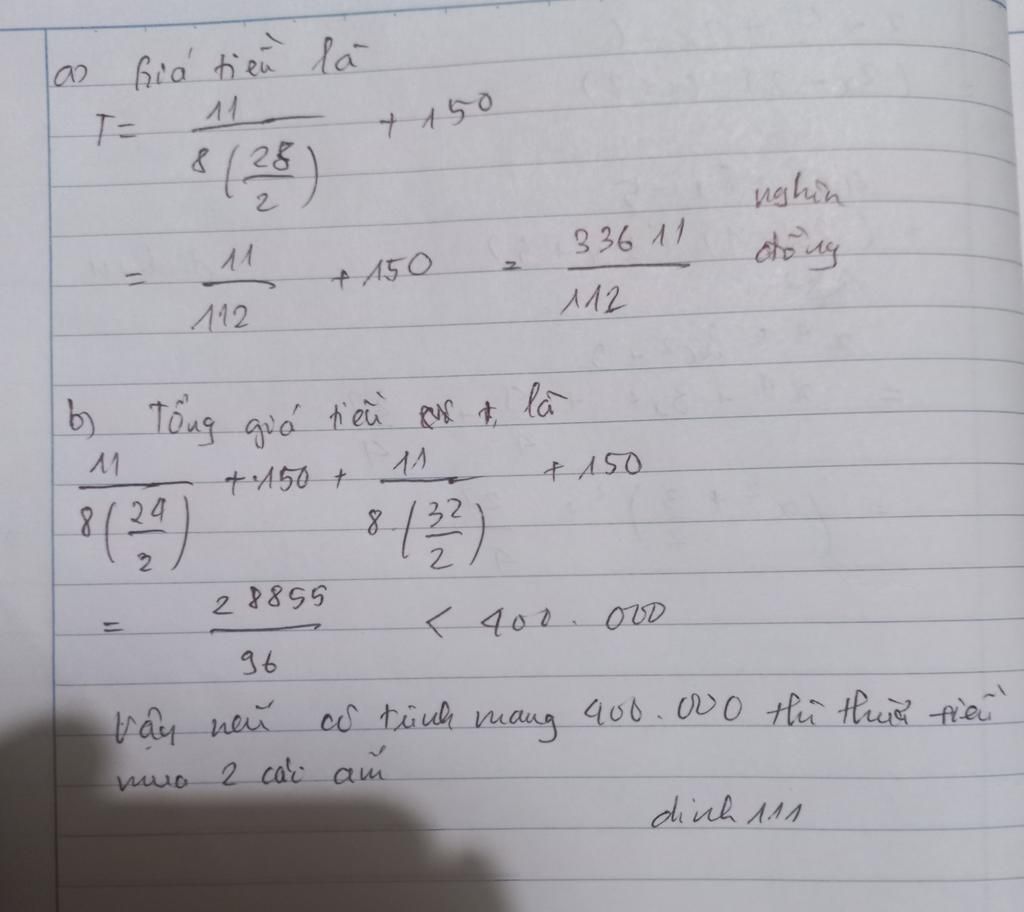 a) Giá tiền là
T = 11 / 8(28/2) + 150
= 11/112 + 150 = 33611/112 nghìn đồng
b) Tổng giá tiền là
11 / 8(24/2) + 150 + 11 / 8.(32/2) + 150
= 28855/96 < 400.000
Vậy nếu cô Hạnh mang 400.000 thì thừa tiền
mua 2 cái ấm
dinh 111